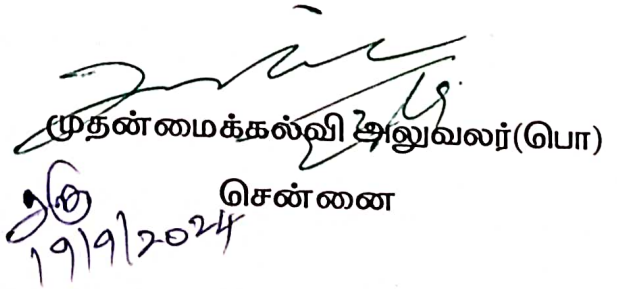 முதன்மைக்கல்வி அலுவலர்(பொ)
சென்னை
19/9/2024